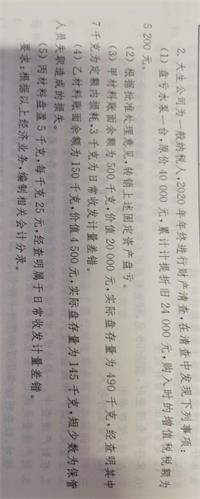 2. 大生公司为一般纳税人,2020年年终进行财产清查,在清查中发现下列事项:
(1) 盘亏水泵一台,原价40 000元,累计计提折旧24 000元,购入时的增值税税额为
5 200元。
(2) 根据批准处理意见,转销上述固定资产盘亏。
(3) 甲材料账面余额为500千克,价值20 000元,实际盘存量为490千克,经查明其中
7千克为定额内损耗,3千克为日常收发计量差错。
(4) 乙材料账面余额为150千克,价值4 500元,实际盘存量为145千克,短少数为保管
人员失职造成的损失。
(5) 丙材料盘盈5千克,每千克25元,经查明属于日常收发计量差错。
要求:根据以上经济业务,编制相关会计分录。